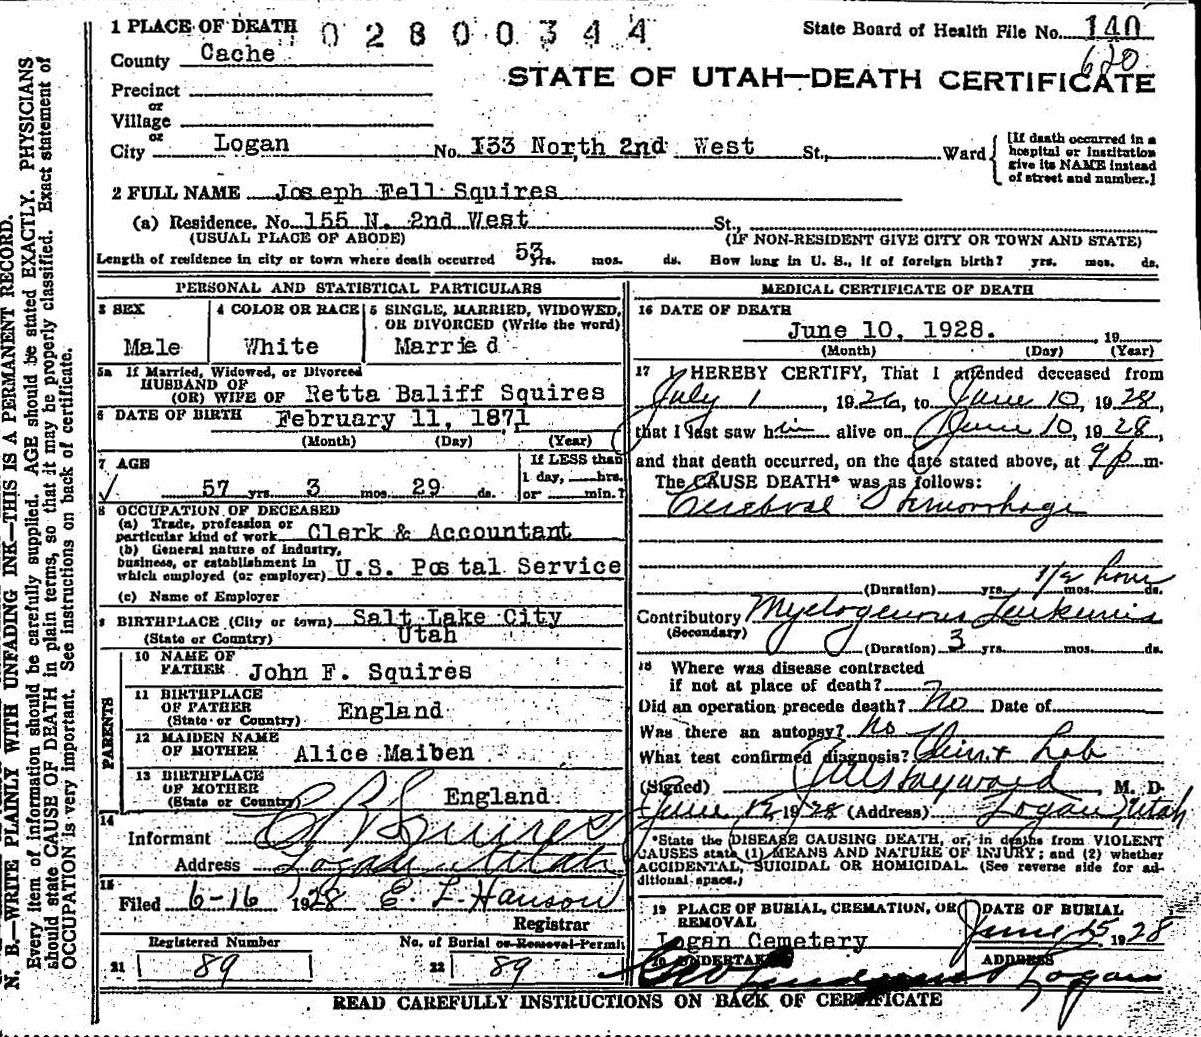 1 PLACE OF DEATH 02800344 State Board of Health File No. 140
County Cache 620
STATE OF UTAH—DEATH CERTIFICATE
Precinct
or
Village
or
City Logan No. 133 North 2nd West St., Ward
[If death occurred in a hospital or institution give its NAME instead of street and number.]
2 FULL NAME Joseph Fell Squires
(a) Residence. No. 155 N. 2nd West St.,
(USUAL PLACE OF ABODE) (IF NON-RESIDENT GIVE CITY OR TOWN AND STATE)
Length of residence in city or town where death occurred 53 yrs. mos. ds. How long in U. S., if of foreign birth? yrs. mos. ds.
PERSONAL AND STATISTICAL PARTICULARS
3 SEX 4 COLOR OR RACE 5 SINGLE, MARRIED, WIDOWED,
OR DIVORCED (Write the word)
Male White Married
5a If Married, Widowed, or Divorced
HUSBAND OF
(OR) WIFE OF Retta Baliff Squires
6 DATE OF BIRTH February 11, 1871
(Month) (Day) (Year)
7 AGE If LESS than
1 day, hrs.
57 yrs. 3 mos. 29 ds. or min.?
8 OCCUPATION OF DECEASED
(a) Trade, profession or
particular kind of work Clerk & Accountant
(b) General nature of industry,
business, or establishment in
which employed (or employer) U.S. Postal Service
(c) Name of Employer
9 BIRTHPLACE (City or town) Salt Lake City
(State or Country) Utah
PARENTS
10 NAME OF
FATHER John F. Squires
11 BIRTHPLACE
OF FATHER
(State or Country) England
12 MAIDEN NAME
OF MOTHER Alice Maiben
13 BIRTHPLACE
OF MOTHER
(State or Country) England
14
Informant Squires
Address Logan Utah
15
Filed 6-16 1928 E. L. Hanson
Registrar
Registered Number No. of Burial or Removal Permit
21 89 22 89
MEDICAL CERTIFICATE OF DEATH
16 DATE OF DEATH
June 10, 1928. 19
(Month) (Day) (Year)
17 I HEREBY CERTIFY, That I attended deceased from
July 1, 1926, to June 10, 1928,
that I last saw him alive on June 10, 1928,
and that death occurred, on the date stated above, at 9 p m.
The CAUSE DEATH* was as follows:
Cerebral Hemorrhage
1/2 hour
(Duration) yrs. mos. ds.
Contributory Myelogenous Leukemia
(Secondary)
(Duration) 3 yrs. mos. ds.
18 Where was disease contracted
if not at place of death?
Did an operation precede death? No Date of
Was there an autopsy? No
What test confirmed diagnosis? Clin. + Lab
(Signed) Hayward, M. D.
June 12, 1928 (Address) Logan, Utah
*State the DISEASE CAUSING DEATH, or, in deaths from VIOLENT
CAUSES state (1) MEANS AND NATURE OF INJURY; and (2) whether
ACCIDENTAL, SUICIDAL OR HOMICIDAL. (See reverse side for ad-
ditional space.)
19 PLACE OF BURIAL, CREMATION, OR DATE OF BURIAL
REMOVAL
Logan Cemetery June 15 1928
20 UNDERTAKER ADDRESS
Logan
READ CAREFULLY INSTRUCTIONS ON BACK OF CERTIFICATE
N. B.—WRITE PLAINLY WITH UNFADING INK—THIS IS A PERMANENT RECORD.
Every item of information should be carefully supplied. AGE should be stated EXACTLY. PHYSICIANS
should state CAUSE OF DEATH in plain terms, so that it may be properly classified. Exact statement of
OCCUPATION is very important. See instructions on back of certificate.